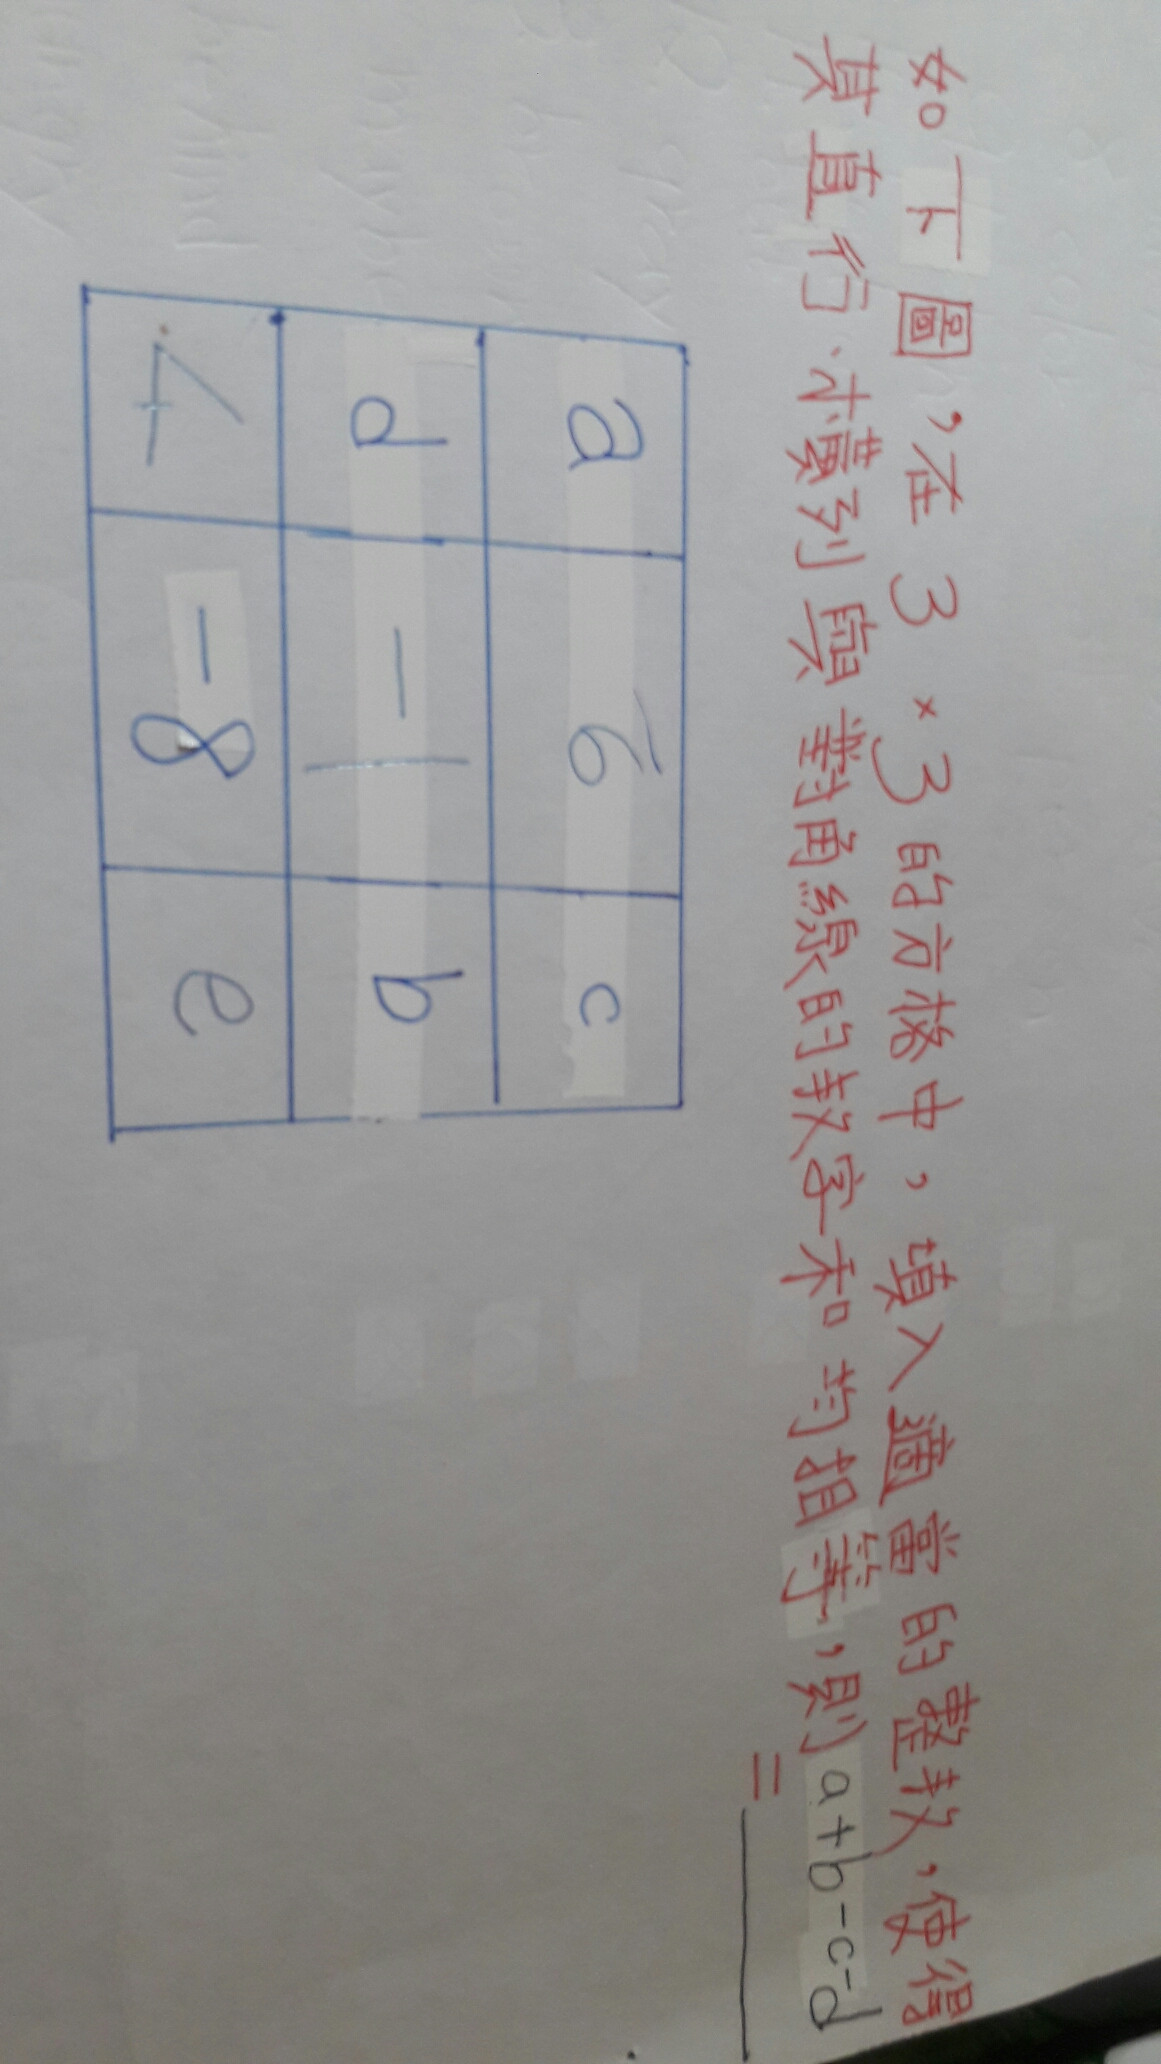 如下圖,在3×3的方格中,填入適當的整數,使得
其直行、橫列與對角線的數字和均相等,則a+b-c-d
=
a 6 c
d -1 b
4 -8 e